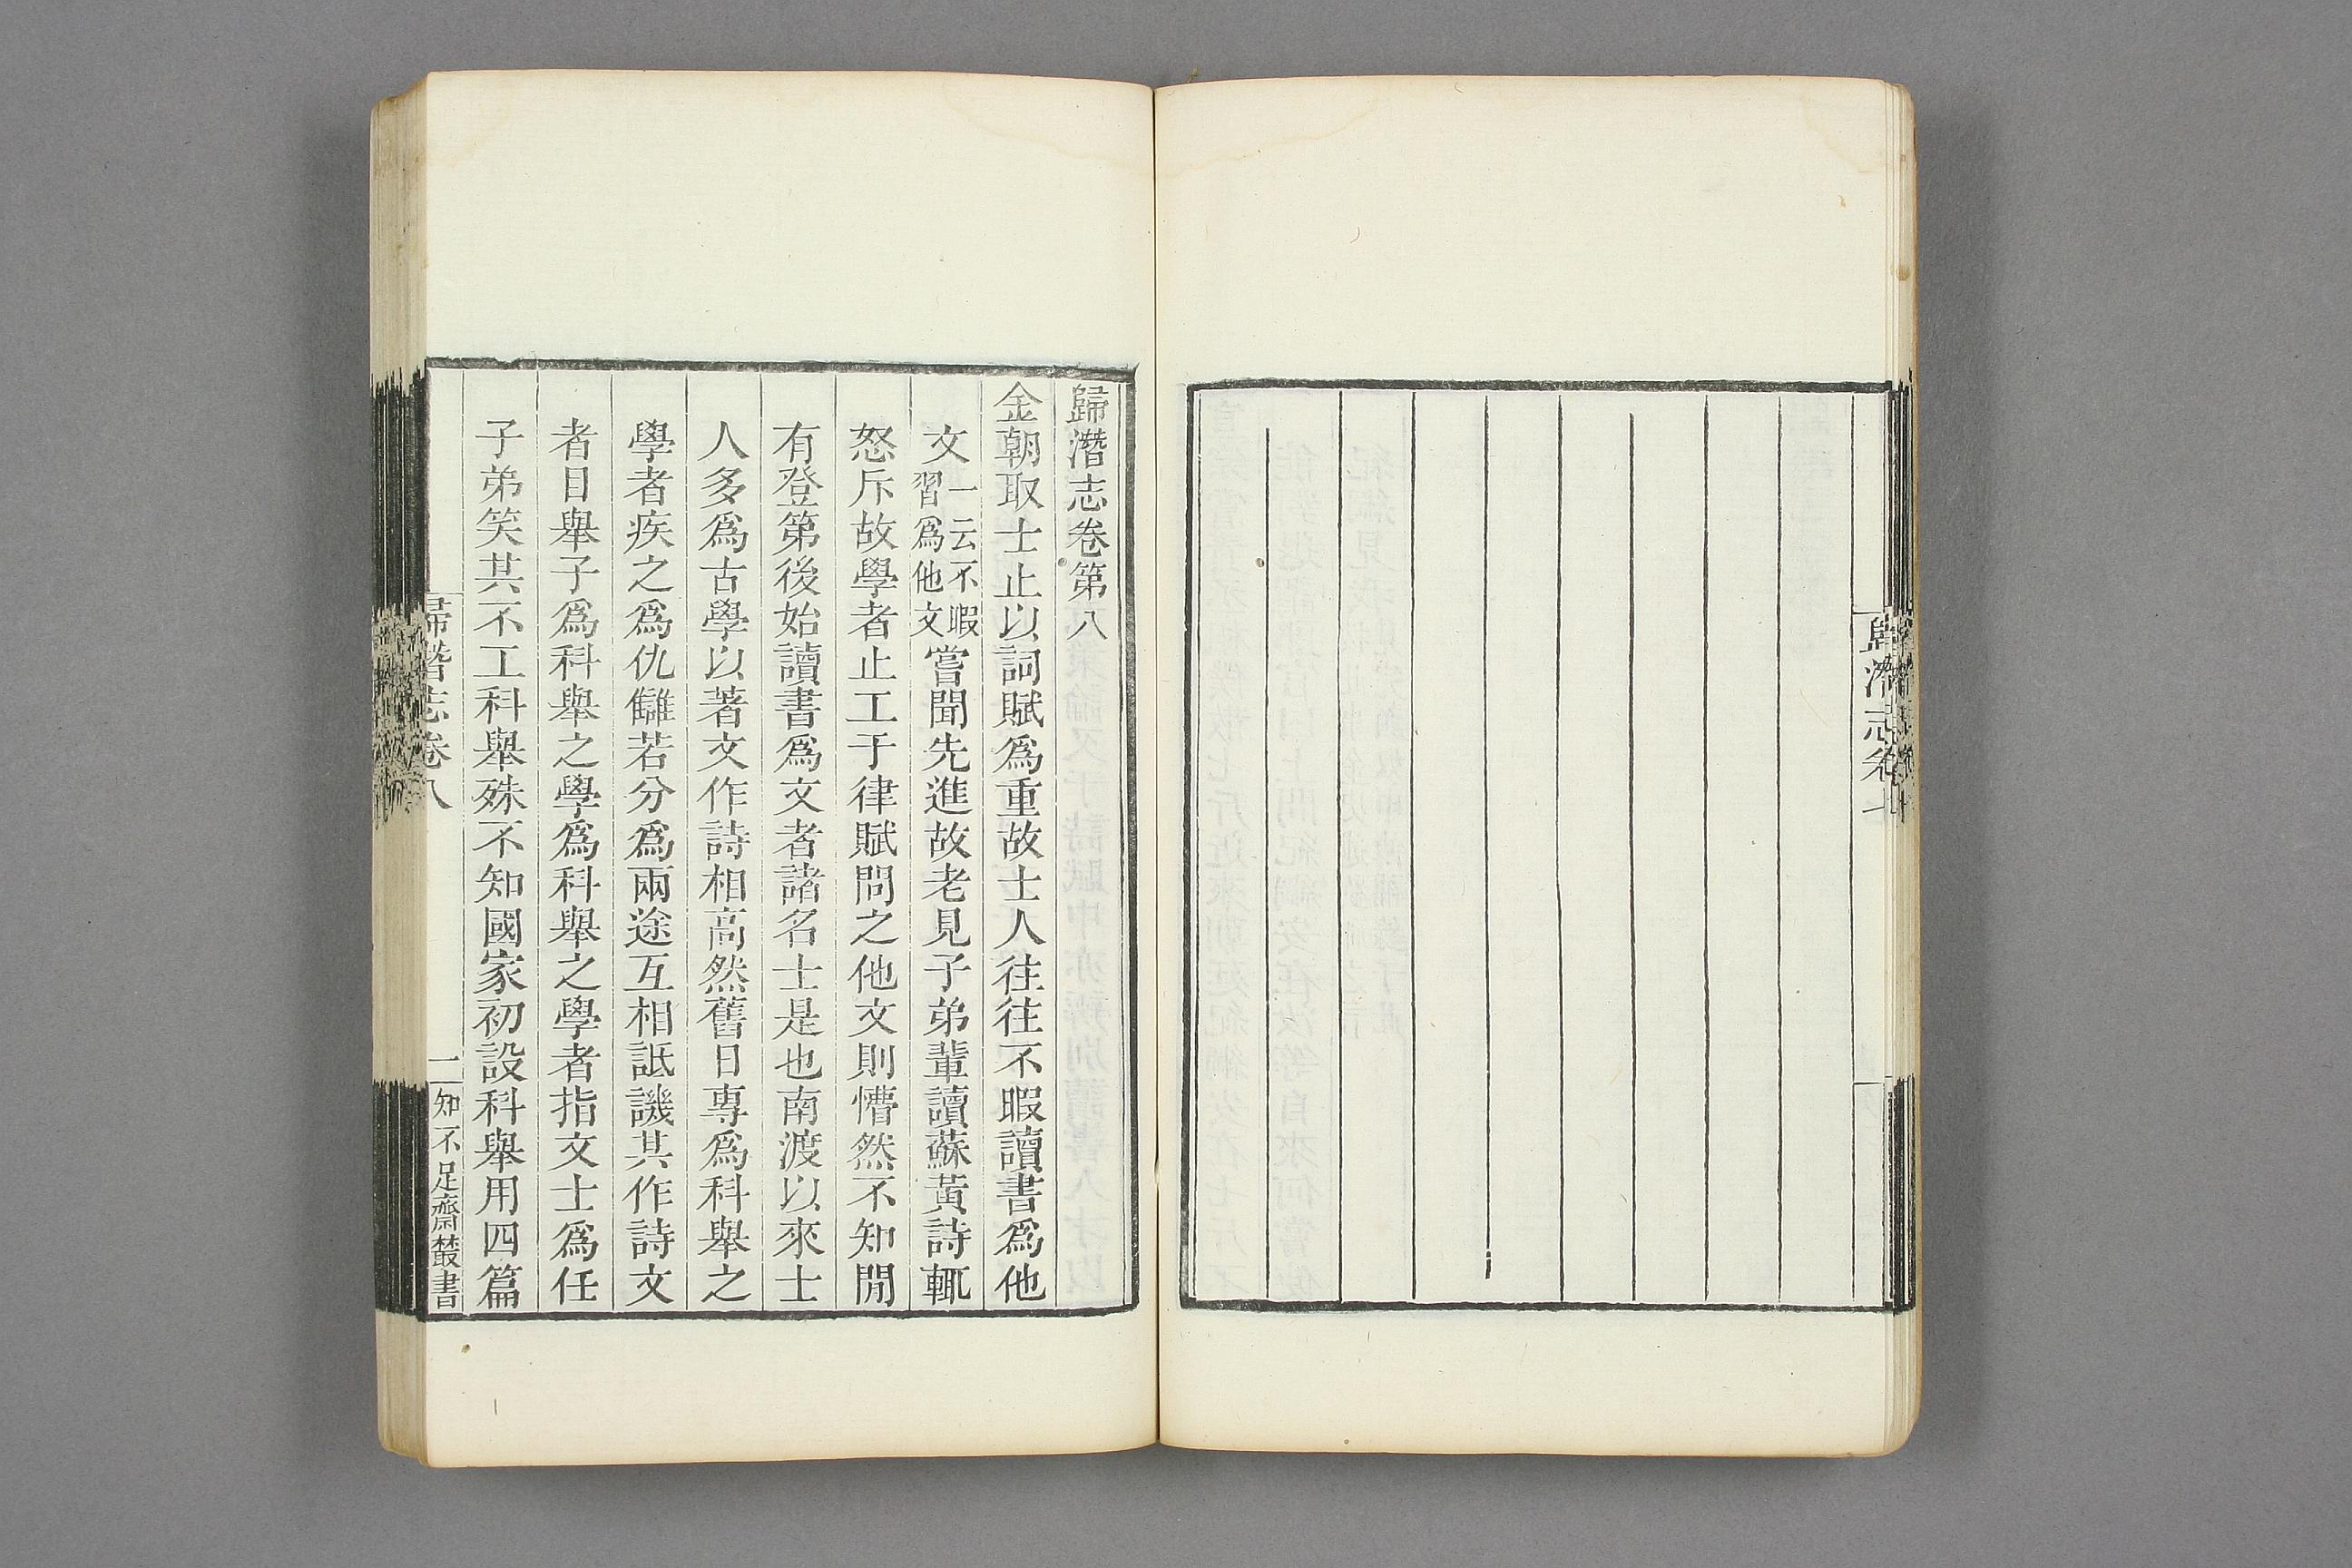 歸潛志卷七
歸潛志卷第八
金朝取士止以詞賦爲重故士人往往不暇讀書爲他
文一云不暇習爲他文嘗聞先進故老見子弟輩讀蘇黃詩輒
怒斥故學者止工于律賦問之他文則懵然不知閒
有登第後始讀書爲文者諸名士是也南渡以來士
人多爲古學以著文作詩相高然舊日專爲科舉之
學者疾之爲仇讎若分爲兩途互相詆譏其作詩文
者目舉子爲科舉之學爲科舉之學者指文士爲任
子弟笑其不工科舉殊不知國家初設科舉用四篇
歸潛志卷八
一
知不足齋叢書